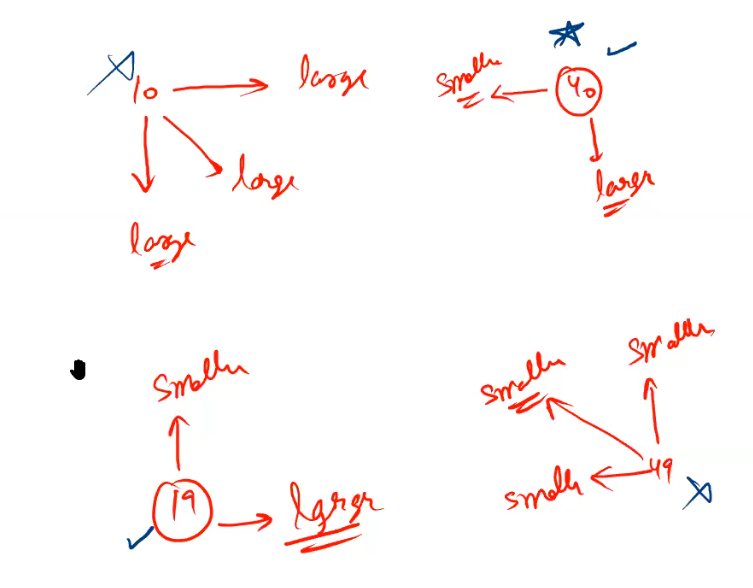 10 large
large
large
smaller 40
larger
smaller
19 larger
smaller
smaller
smaller 49